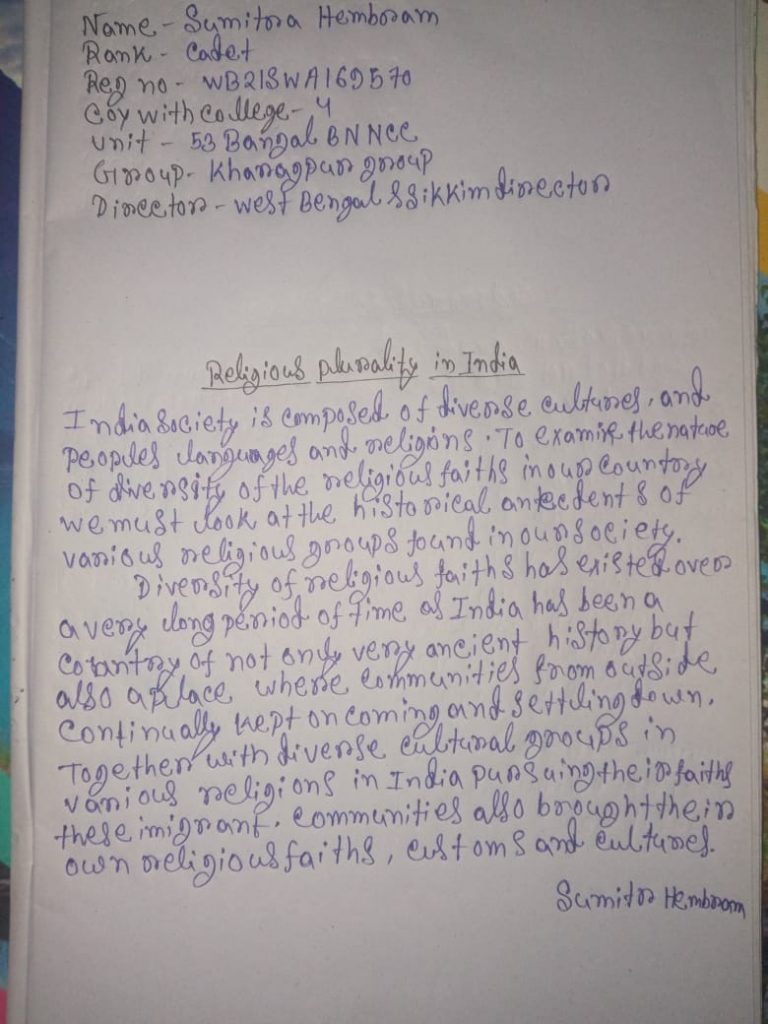 Name - Sumitra Hembram
Rank - Cadet
Reg no - WB21SWA169570
Coy with college - 4
Unit - 53 Bangal BN NCC
Group - Kharagpur group
Director - West Bengal & Sikkim director
Religious plurality in India
India Society is composed of diverse cultures, and
peoples languages and religions. To examine the nature
of diversity of the religious faiths in our country
we must look at the historical antecedents of
various religious groups found in our society.
Diversity of religious faiths has existed over
a very long period of time as India has been a
country of not only very ancient history but
also a place where communities from outside
continually kept on coming and settling down.
Together with diverse cultural groups in
various religions in India pursuing their faiths
these imigrant. communities also brought their
own religious faiths, customs and cultures.
Sumitra Hembram